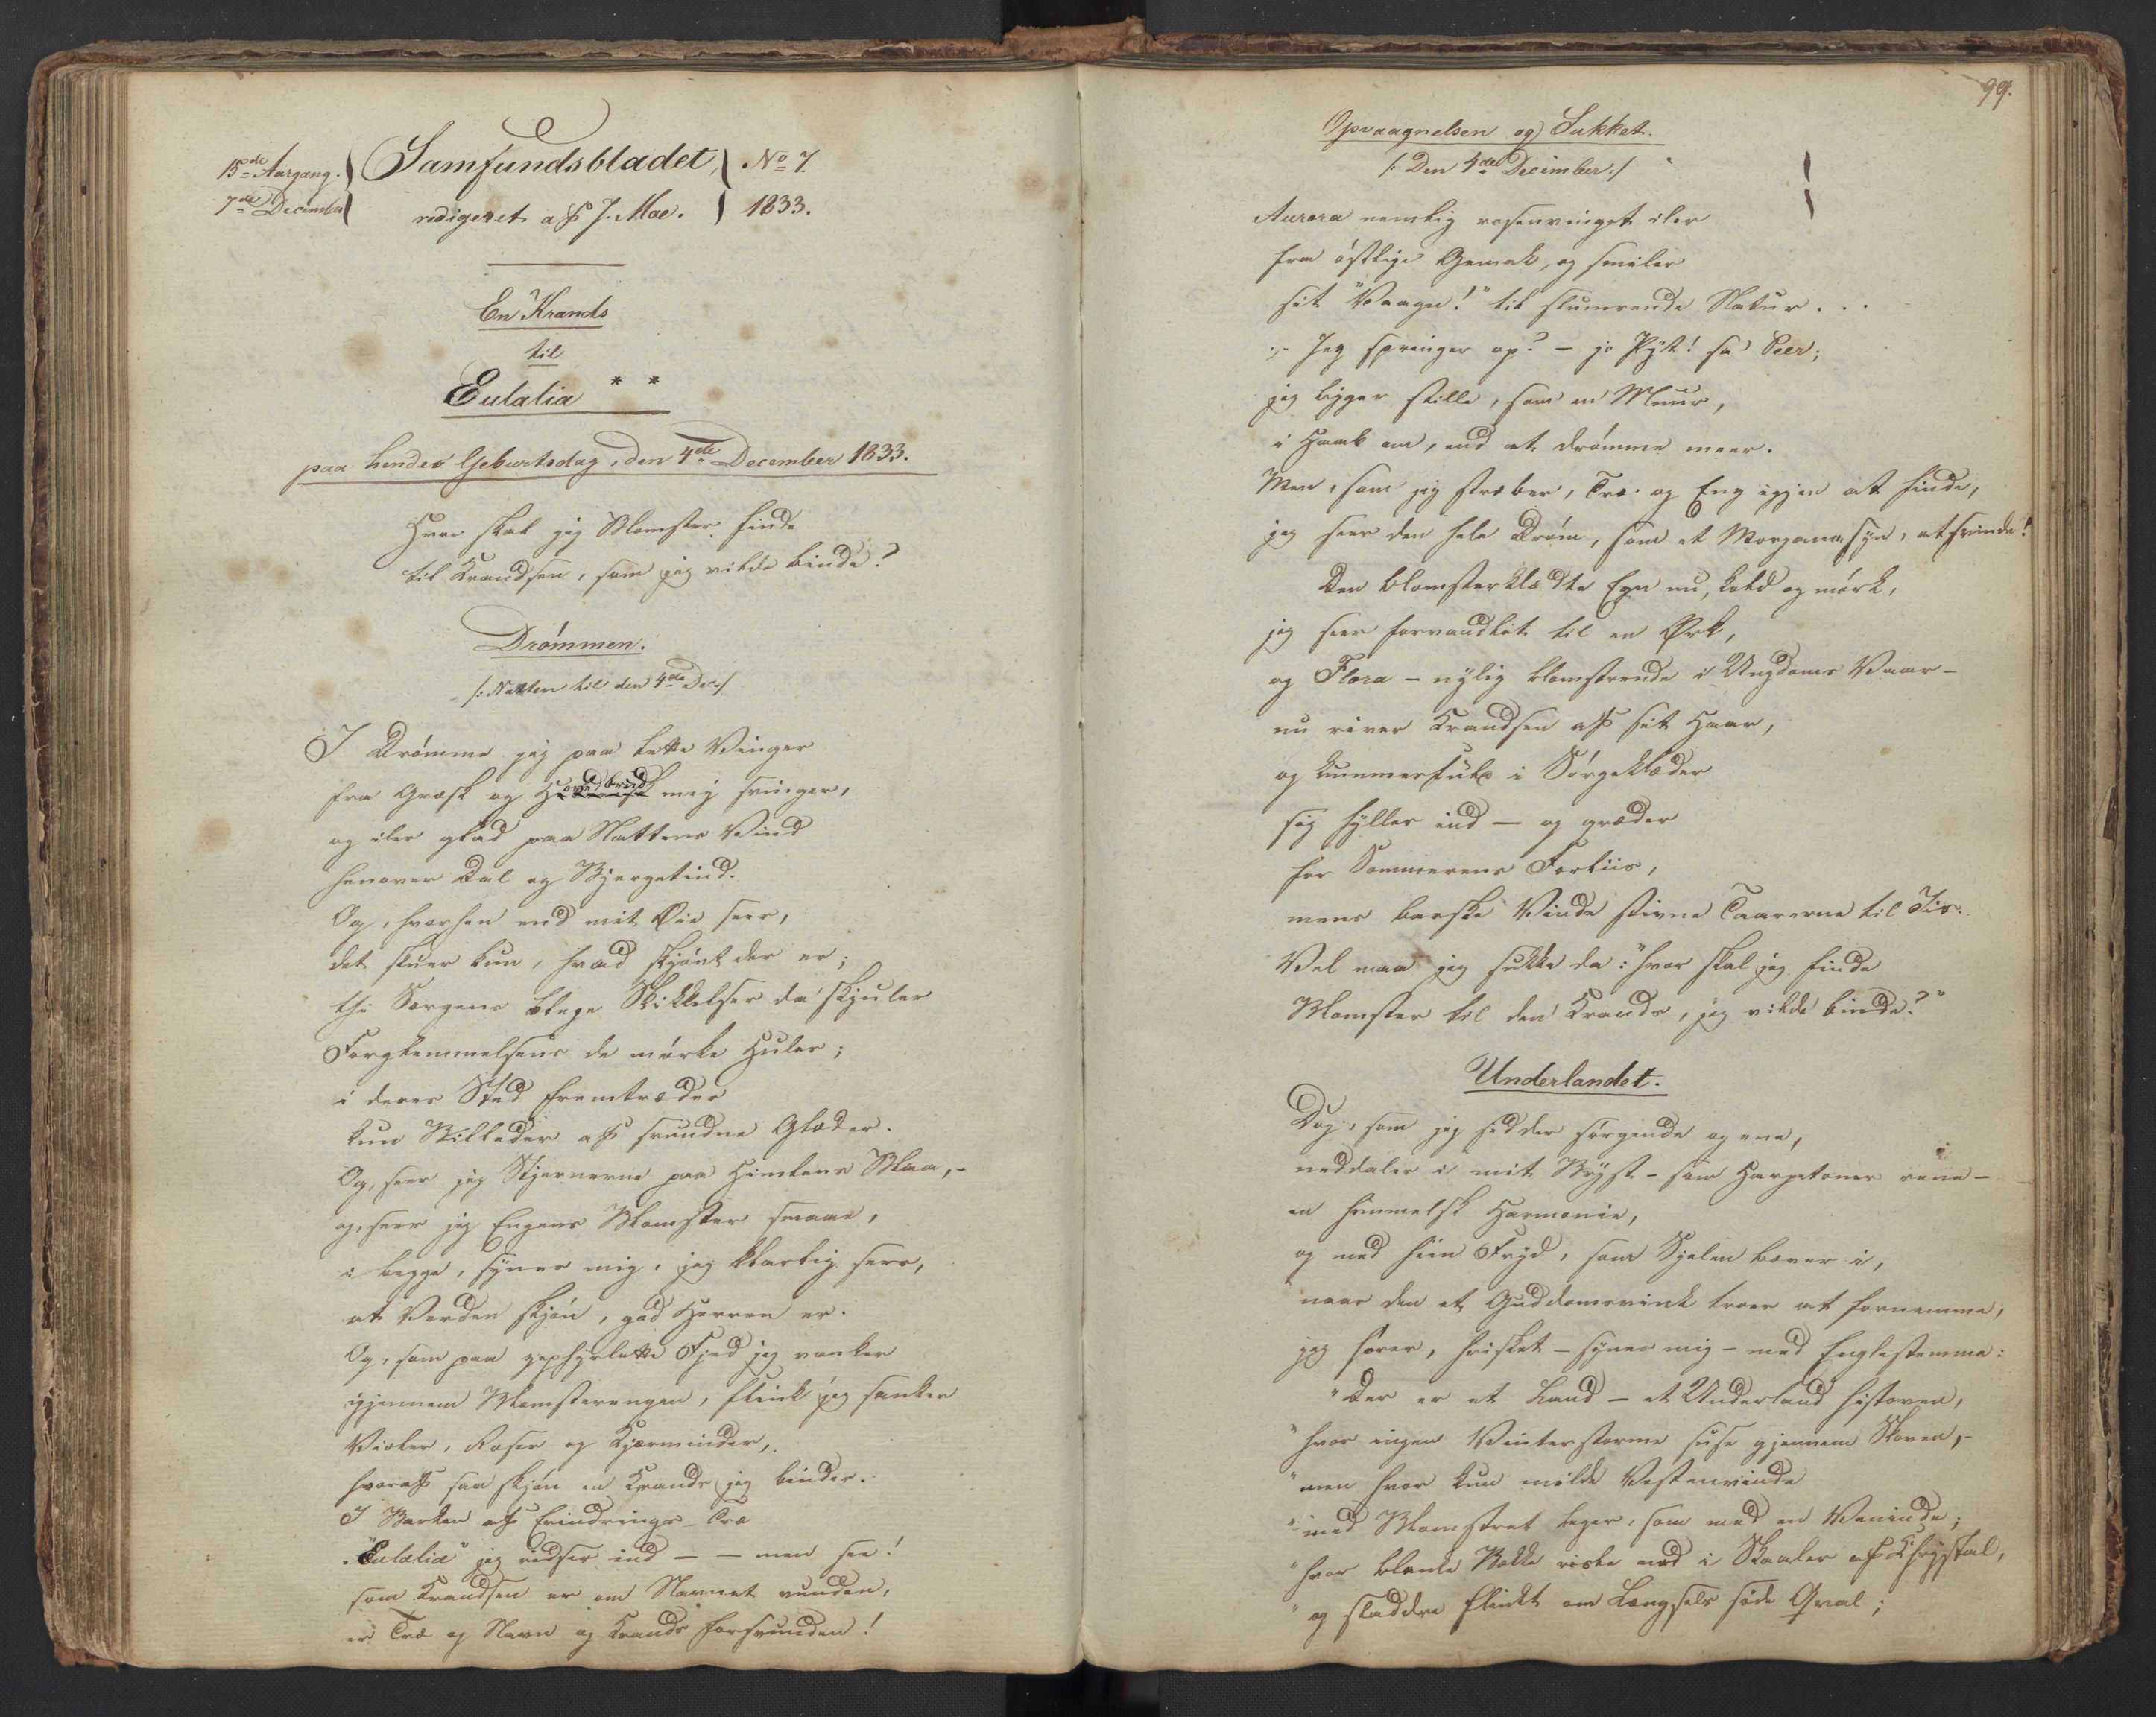 15de Aargang. Samfundsbladet, No 7.
7de December redigeret af J. Moe. 1833.
En Krands
til
Eulalia * *
paa hendes Geburtsdag, den 4de December 1833.
Hvor skal jeg Blomster finde
til Krandsen, som jeg vilde binde?
Drømmen.
/: Natten til den 4de Dec:/
I Drømme jeg paa lette Vinger
fra Græsk og mig svinger,
og iler glad paa Nattens Vind
henover Dal og Bjergetind.
Og, hvorhen end mit Øie seer,
det skuer kun, hvad skjønt der er;
thi Sorgens blege Skikkelser da skjuler
Forglemmelsens de mørke Huler;
i deres Sted fremtræder
kun Billeder af svundne Glæder.
Og, seer jeg Stjernerne paa Himlens Blaa,-
og, seer jeg Engens Blomster smaae,
i begge, synes mig, jeg klarlig seer,
at Verden skjøn, god Herren er.
Og, som paa zephyrlette Fjed jeg vanker
igjennem Blomsterengen, flink jeg sanker
Violer, Roser og Kjærminder,
hvoraf saa skjøn en Krands jeg binder.
I Barken af Erindrings-Træ
"Eulalia" jeg ridser ind — — men see!
som Krandsen er om Navnet vunden,
er Træ og Navn og Krands forsvunden!
99.
Opvaagnelsen og Sukket.
/: Den 4de December:/
Aurora nemlig rosenvinget iler
fra østlige Gemak, og smiler
sit "Vaagn!" til slumrende Natur. . .
Jeg springer op? — jo Pyt! sa' Peer;
jeg ligger stille, som en Muur,
i Haab om, end at drømme meer.
Men, som jeg stræber, Træ og Eng igjen at finde,
jeg seer den hele Drøm, som et Morganasyn, at svinde!
Den blomsterklædte Egn nu, kold og mørk,
jeg seer forvandlet til en Ørk,
og Flora — nylig blomstrende i Ungdoms Vaar —
nu river Krandsen af sit Haar,
og kummerfuld i Sørgeklæder
sig hyller ind — og græder
for Sommerens Forliis,
mens barske Vinde stivne Taarerne til Iis.
Vel maa jeg sukke da: "hvor skal jeg finde
Blomster til den Krands, jeg vilde binde?"
Underlandet.
Dog, som jeg sidder sørgende og ene,
neddaler i mit Bryst — som Harpetoner rene —
en himmelsk Harmonie,
og med hiin Fryd, som Sjelen bæver i,
naar den et Guddomsvink troer at fornemme,
jeg hører, hvisket — synes mig — med Englestemme:
"Der er et Land — et Underland histoven,
"hvor ingen Vinterstorme suse gjennem Skoven,-
"men hvor kun milde Vestenvinde
"med Blomstret leger, som med en Veninde;
"hvor blanke Bække risle ned i Skaaler af Chrystal,
"og sladdre flinkt om Længsels søde Qval;